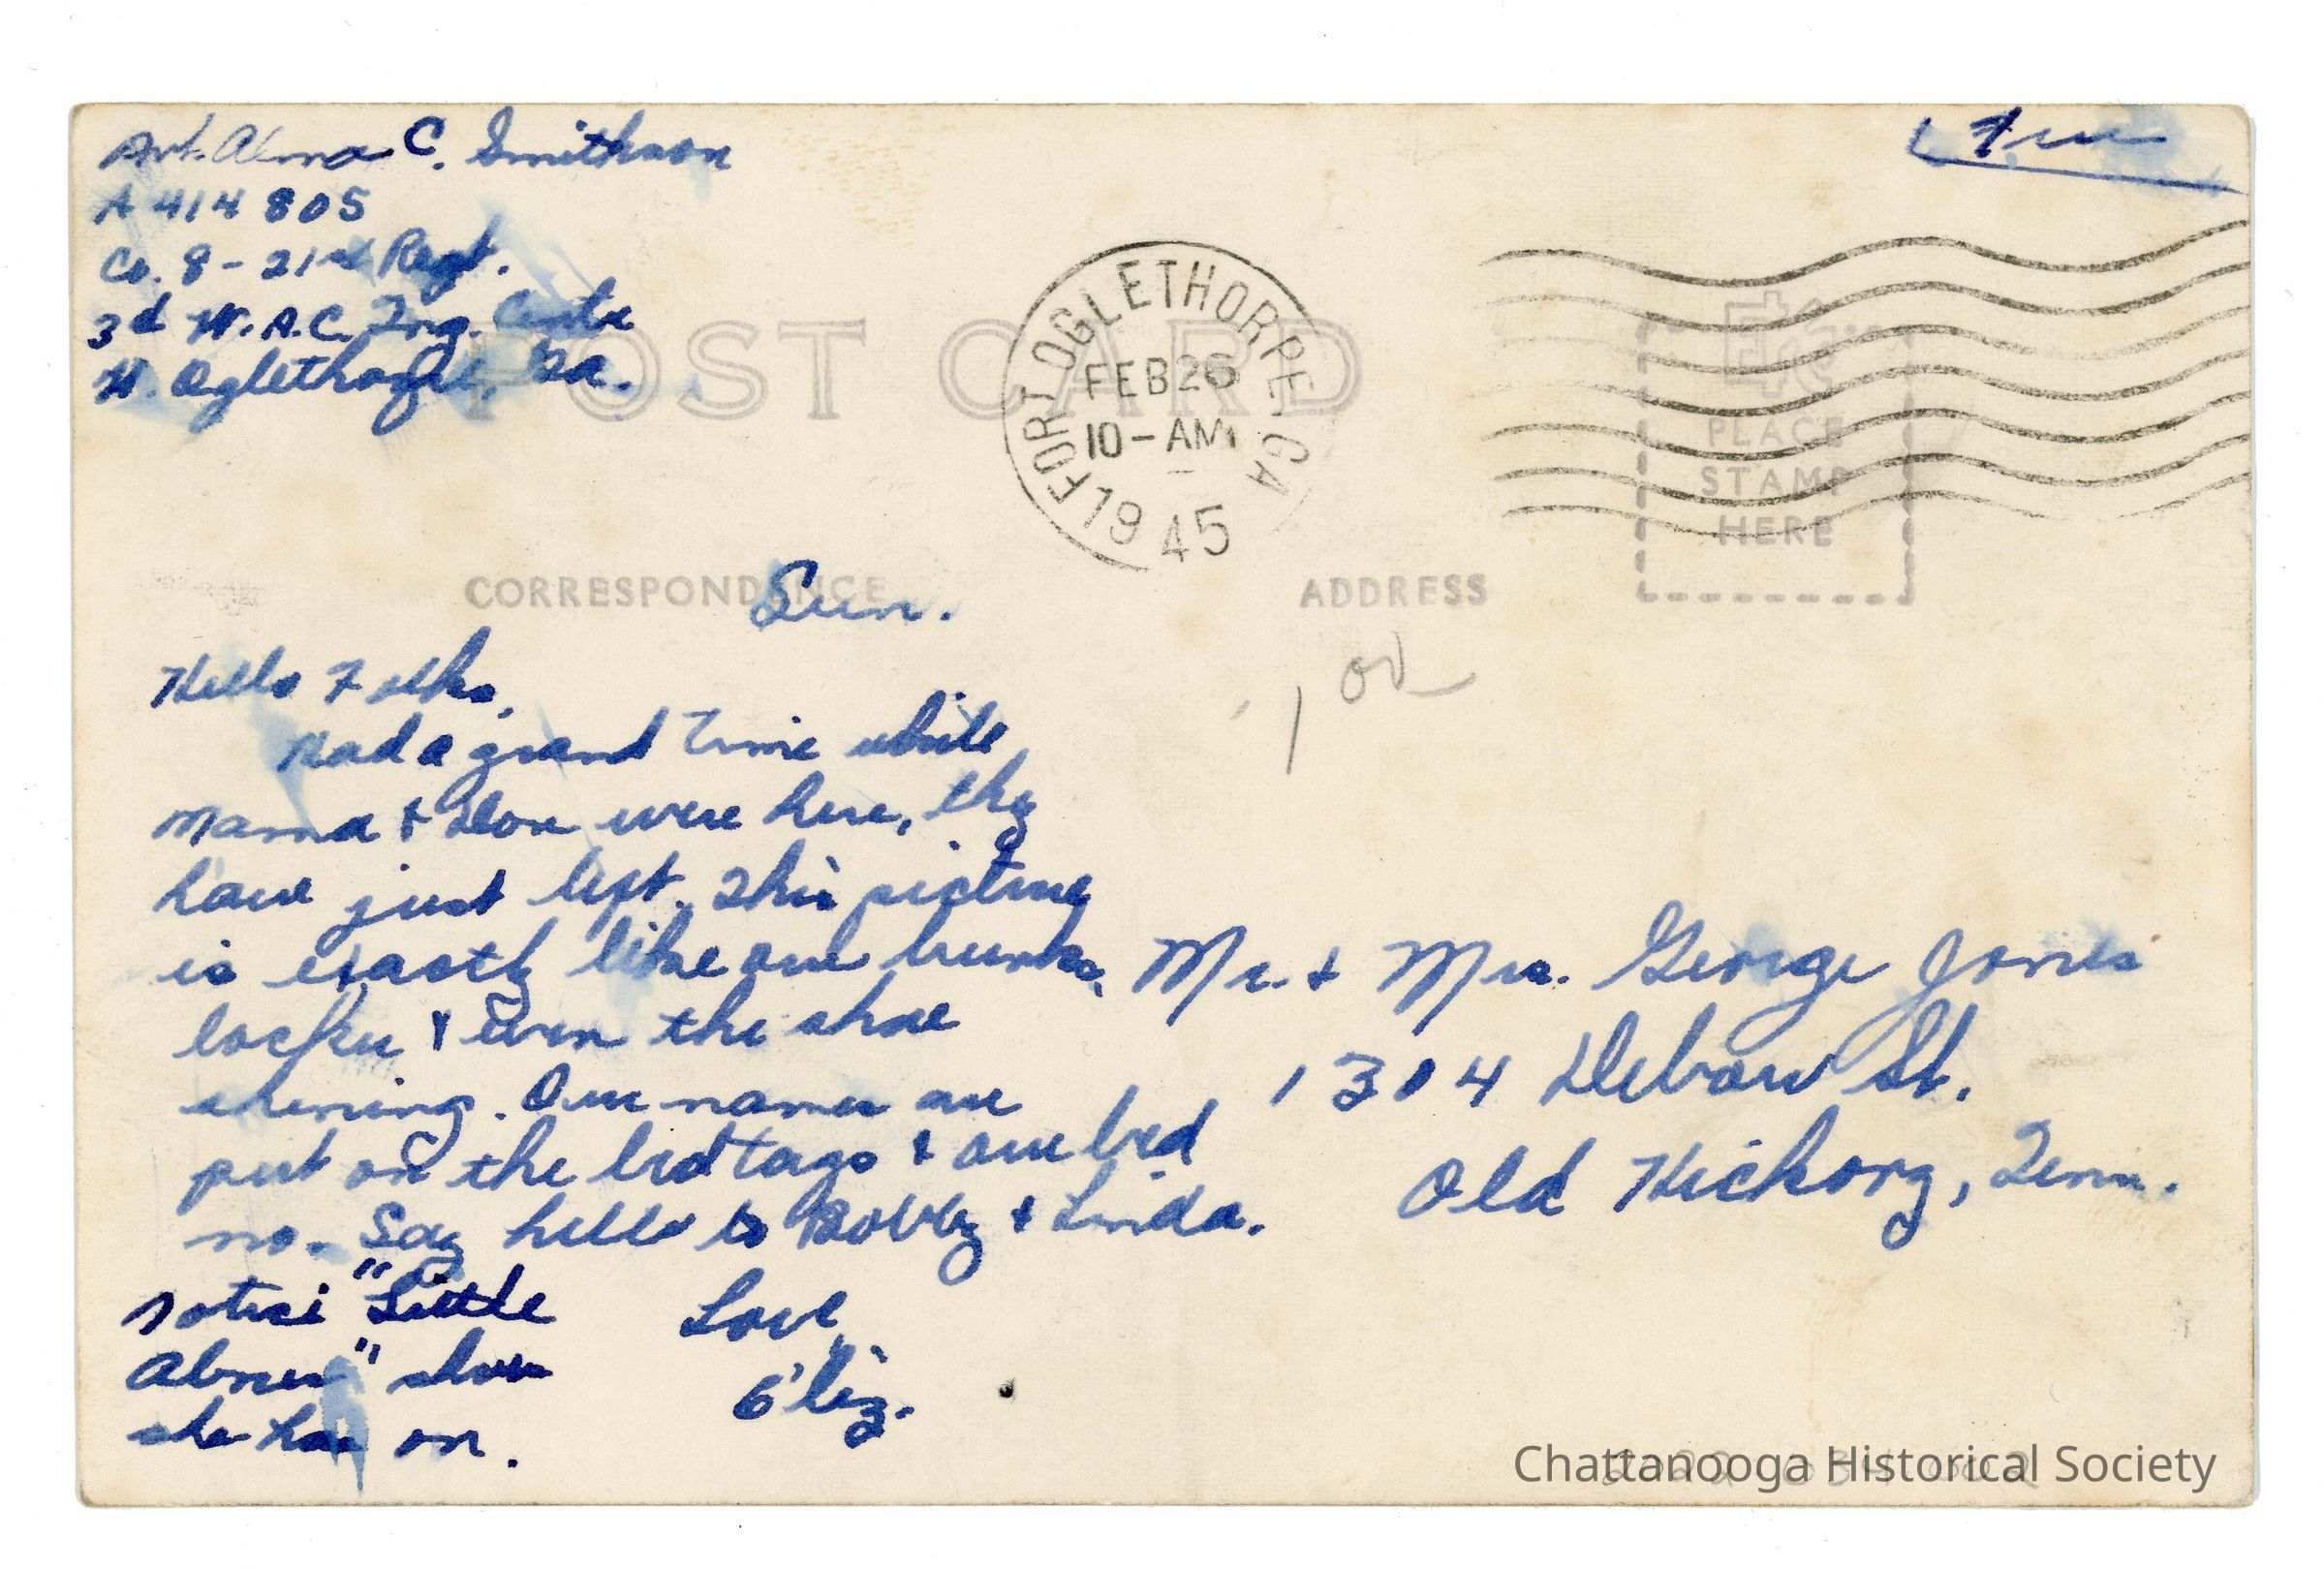 Pvt. Alma C. Smithson
A 414 805
Co. 8 - 21st Regt.
3d W.A.C. Trng. Centre
Ft. Oglethorpe, Ga.
Free
POST CARD
FORT OGLETHORPE, GA
FEB 26
10-AM
1945
EKC
PLACE
STAMP
HERE
CORRESPONDENCE
ADDRESS
1 00
Sun.
Hello Folks,
Had a grand time while
Mama & were here, they
have just left. This picture
is exactly like our bunks,
locker & even the shoe
shining. Our names are
put on the bed tags & our bed
no. Say hello to Bobby & Linda.
Notice "Little
Abner" shoes
she has on.
Love,
E'liz.
Mr. & Mrs. George Jones
1304 Debow St.
Old Hickory, Tenn.
Chattanooga Historical Society